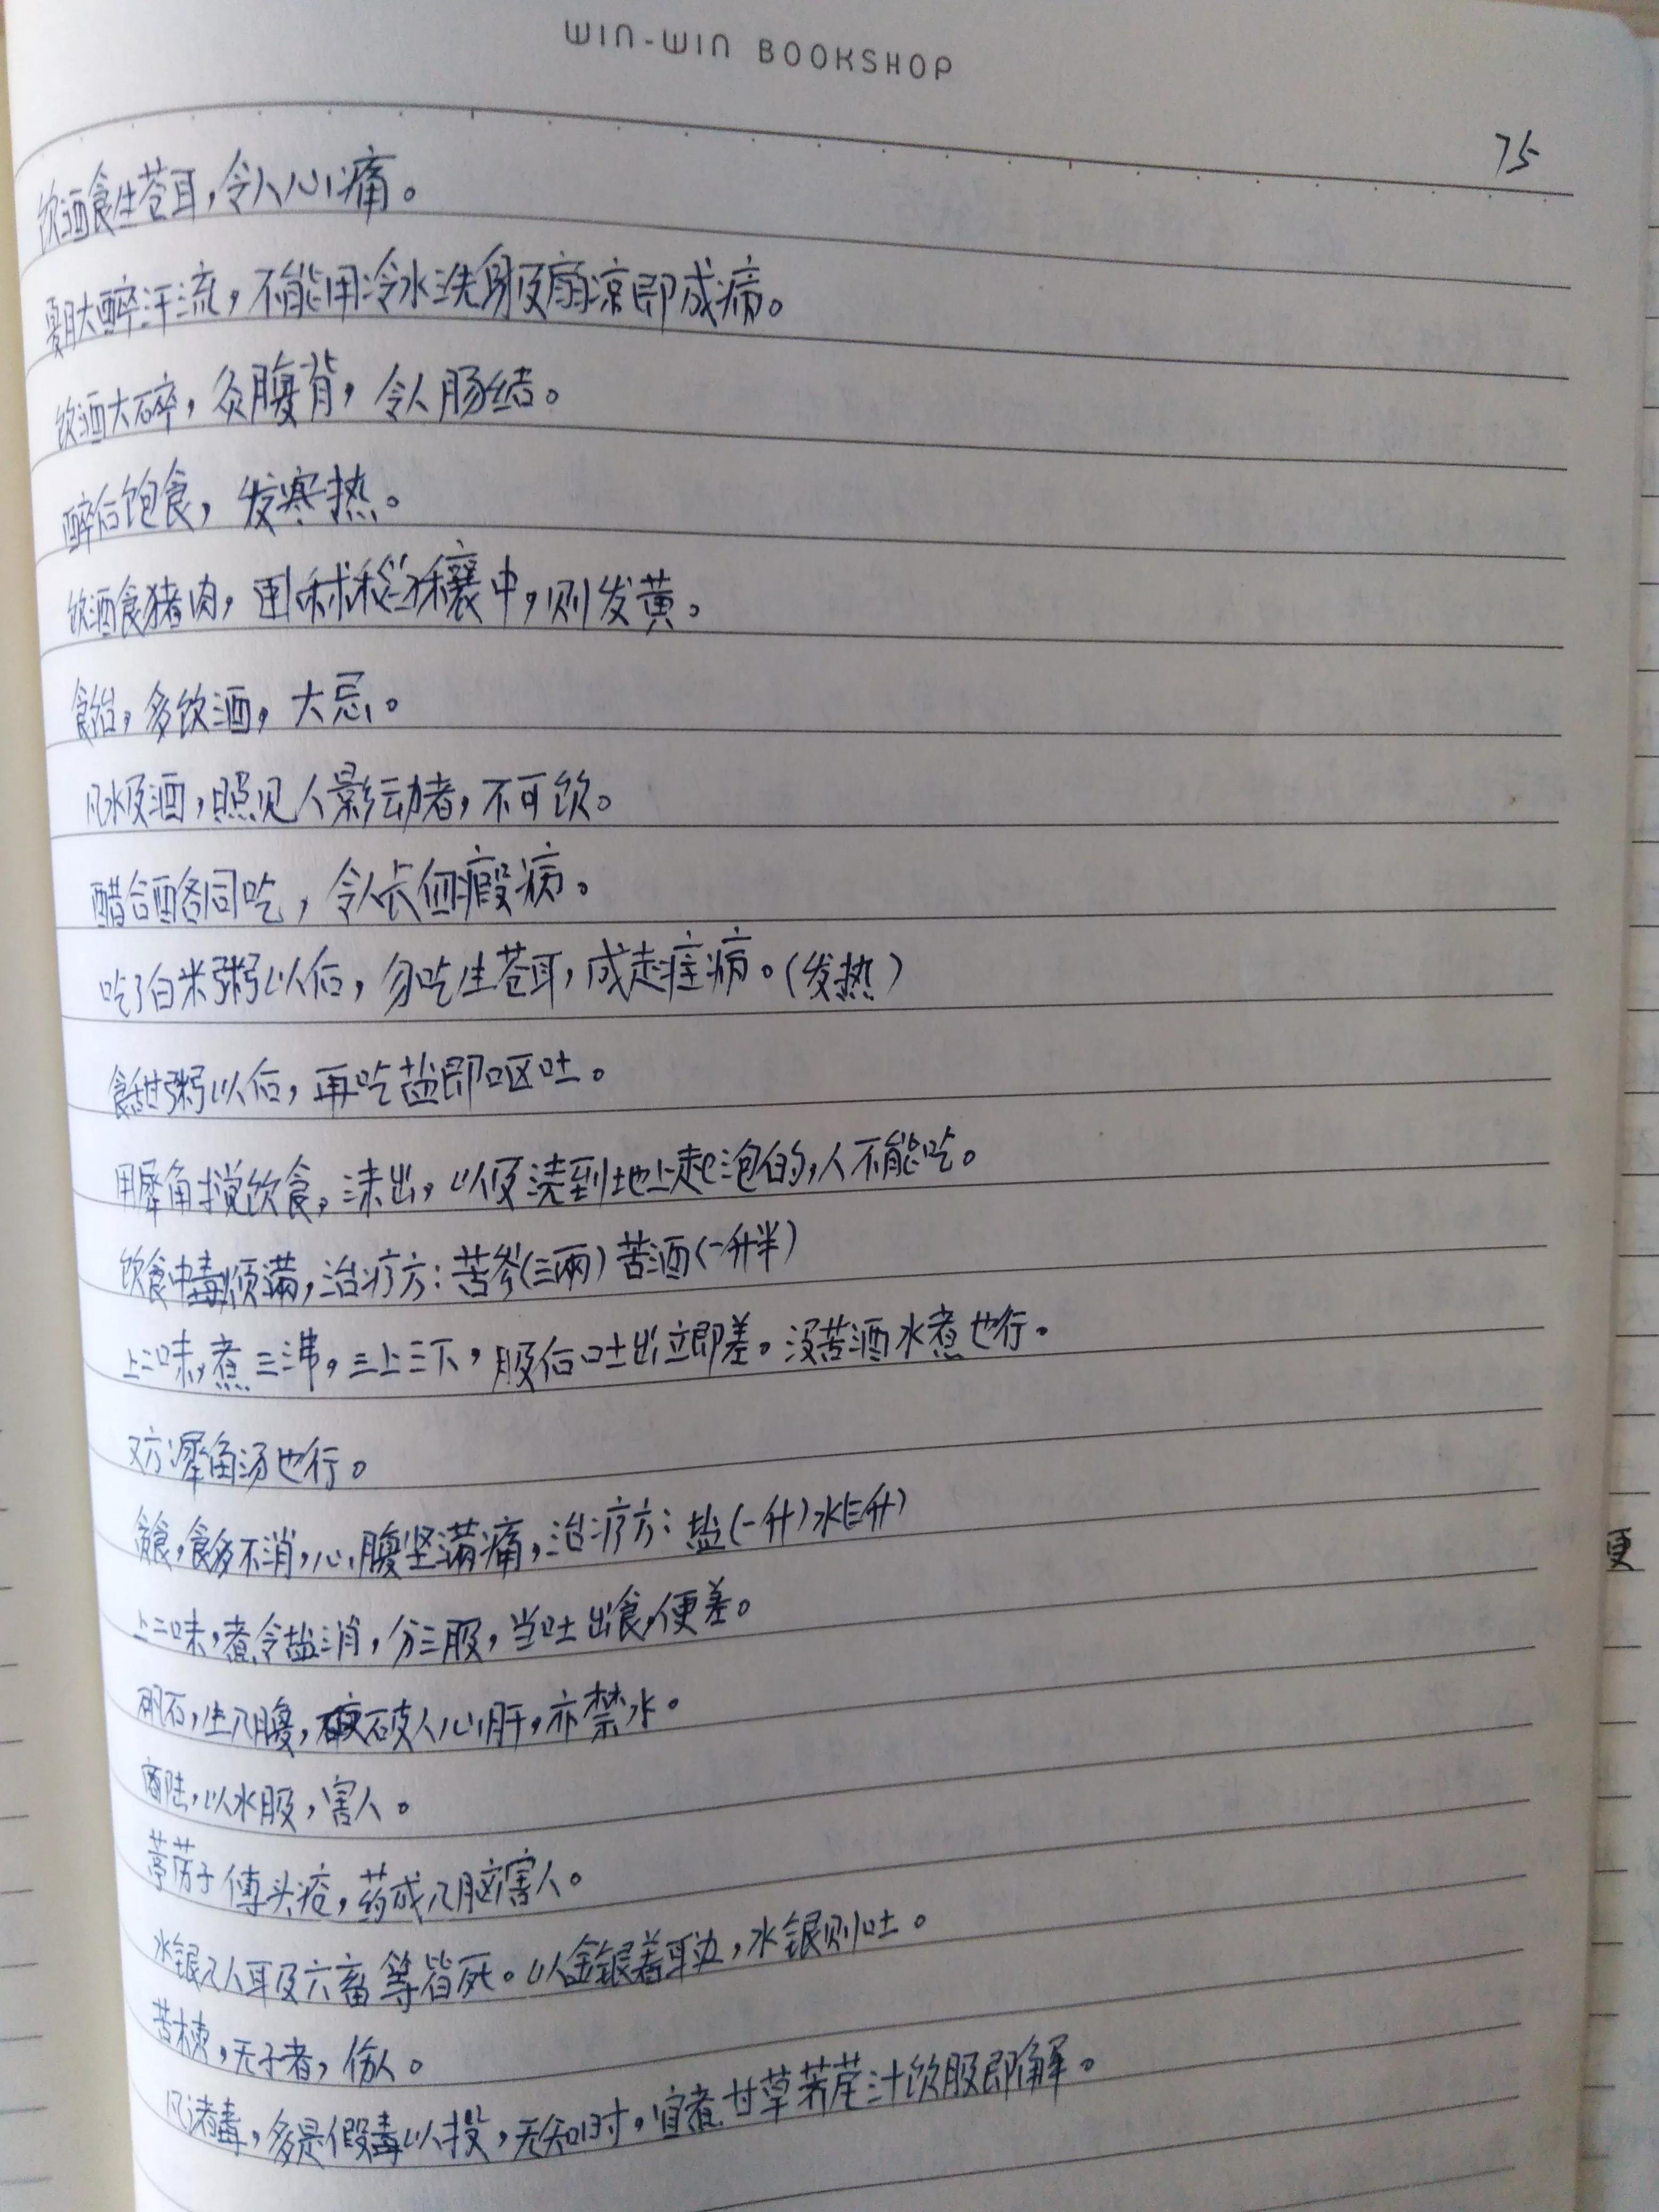 WIN-WIN BOOKSHOP
75
饮酒食生苍耳,令人心痛。
夏月大醉汗流,不能用冷水洗身及扇凉即成病。
饮酒大碎,灸腹背,令人肠结。
醉后饱食,发寒热。
饮酒食猪肉,秫稻穰中,则发黄。
食饴,多饮酒,大忌。
凡水及酒,照见人影动者,不可饮。
醋合酪同吃,令人长血瘕病。
吃了白米粥以后,勿吃生苍耳,成走疰病。(发热)
食甜粥以后,再吃盐即呕吐。
用犀角搅饮食,沫出,以及浇到地上起泡的,人不能吃。
饮食中毒烦满,治疗方:苦参(三兩)苦酒(一升半)
上二味,煮三沸,三上三下,服后吐出立即差。没苦酒水煮也行。
又方:犀角汤也行。
贪食,食多不消,心腹坚满痛,治疗方:盐(一升)水(三升)
上二味,煮令盐消,分三服,当吐出食,便差。
矾石,生入腹,破人心肝,亦禁水。
商陆,以水服,害人。
葶苈子傅头疮,药成入脑害人。
水银入人耳及六畜等皆死。以金银着耳边,水银则吐。
苦楝,无子者,伤人。
凡诸毒,多是假毒以投,无知时,宜煮甘草荠苨汁饮服即解。
更